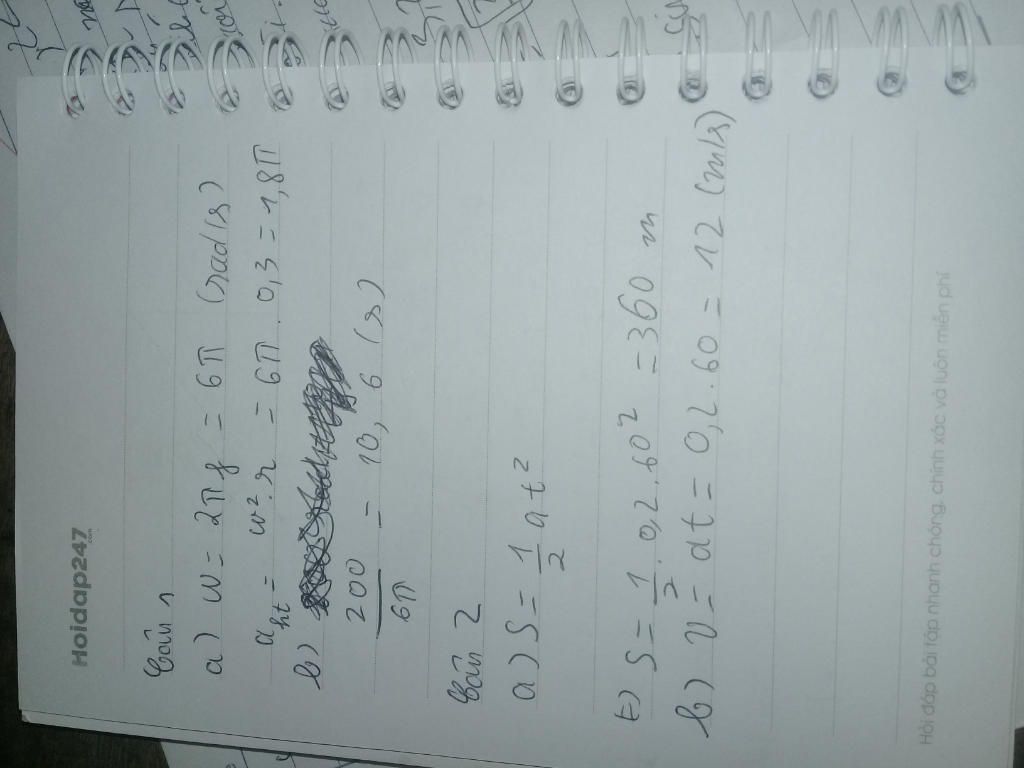 Hoidap247
.com
Câu 1
a) w = 2πf = 6π (rad/s)
a_ht = w².r = 6π . 0,3 = 1,8π
b)
200/6π = 10,6 (s)
Câu 2
a) S = 1/2 at²
=) S = 1/2 . 0,2 . 60² = 360 m
b) v = at = 0,2 . 60 = 12 (m/s)
Hỏi đáp bài tập nhanh chóng, chính xác và luôn miễn phí